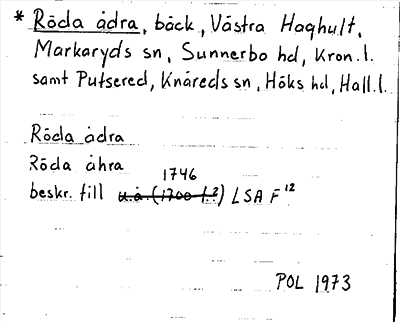 * Röda ådra, bäck, Västra Haghult,
Markaryds sn, Sunnerbo hd, Kron.l.
samt Putsered, Knäreds sn, Höks hd, Hall.l.
Röda ådra
Röda åhra
1746
beskr. till u.å. (1700-t.?) LSA F 12
POL 1973